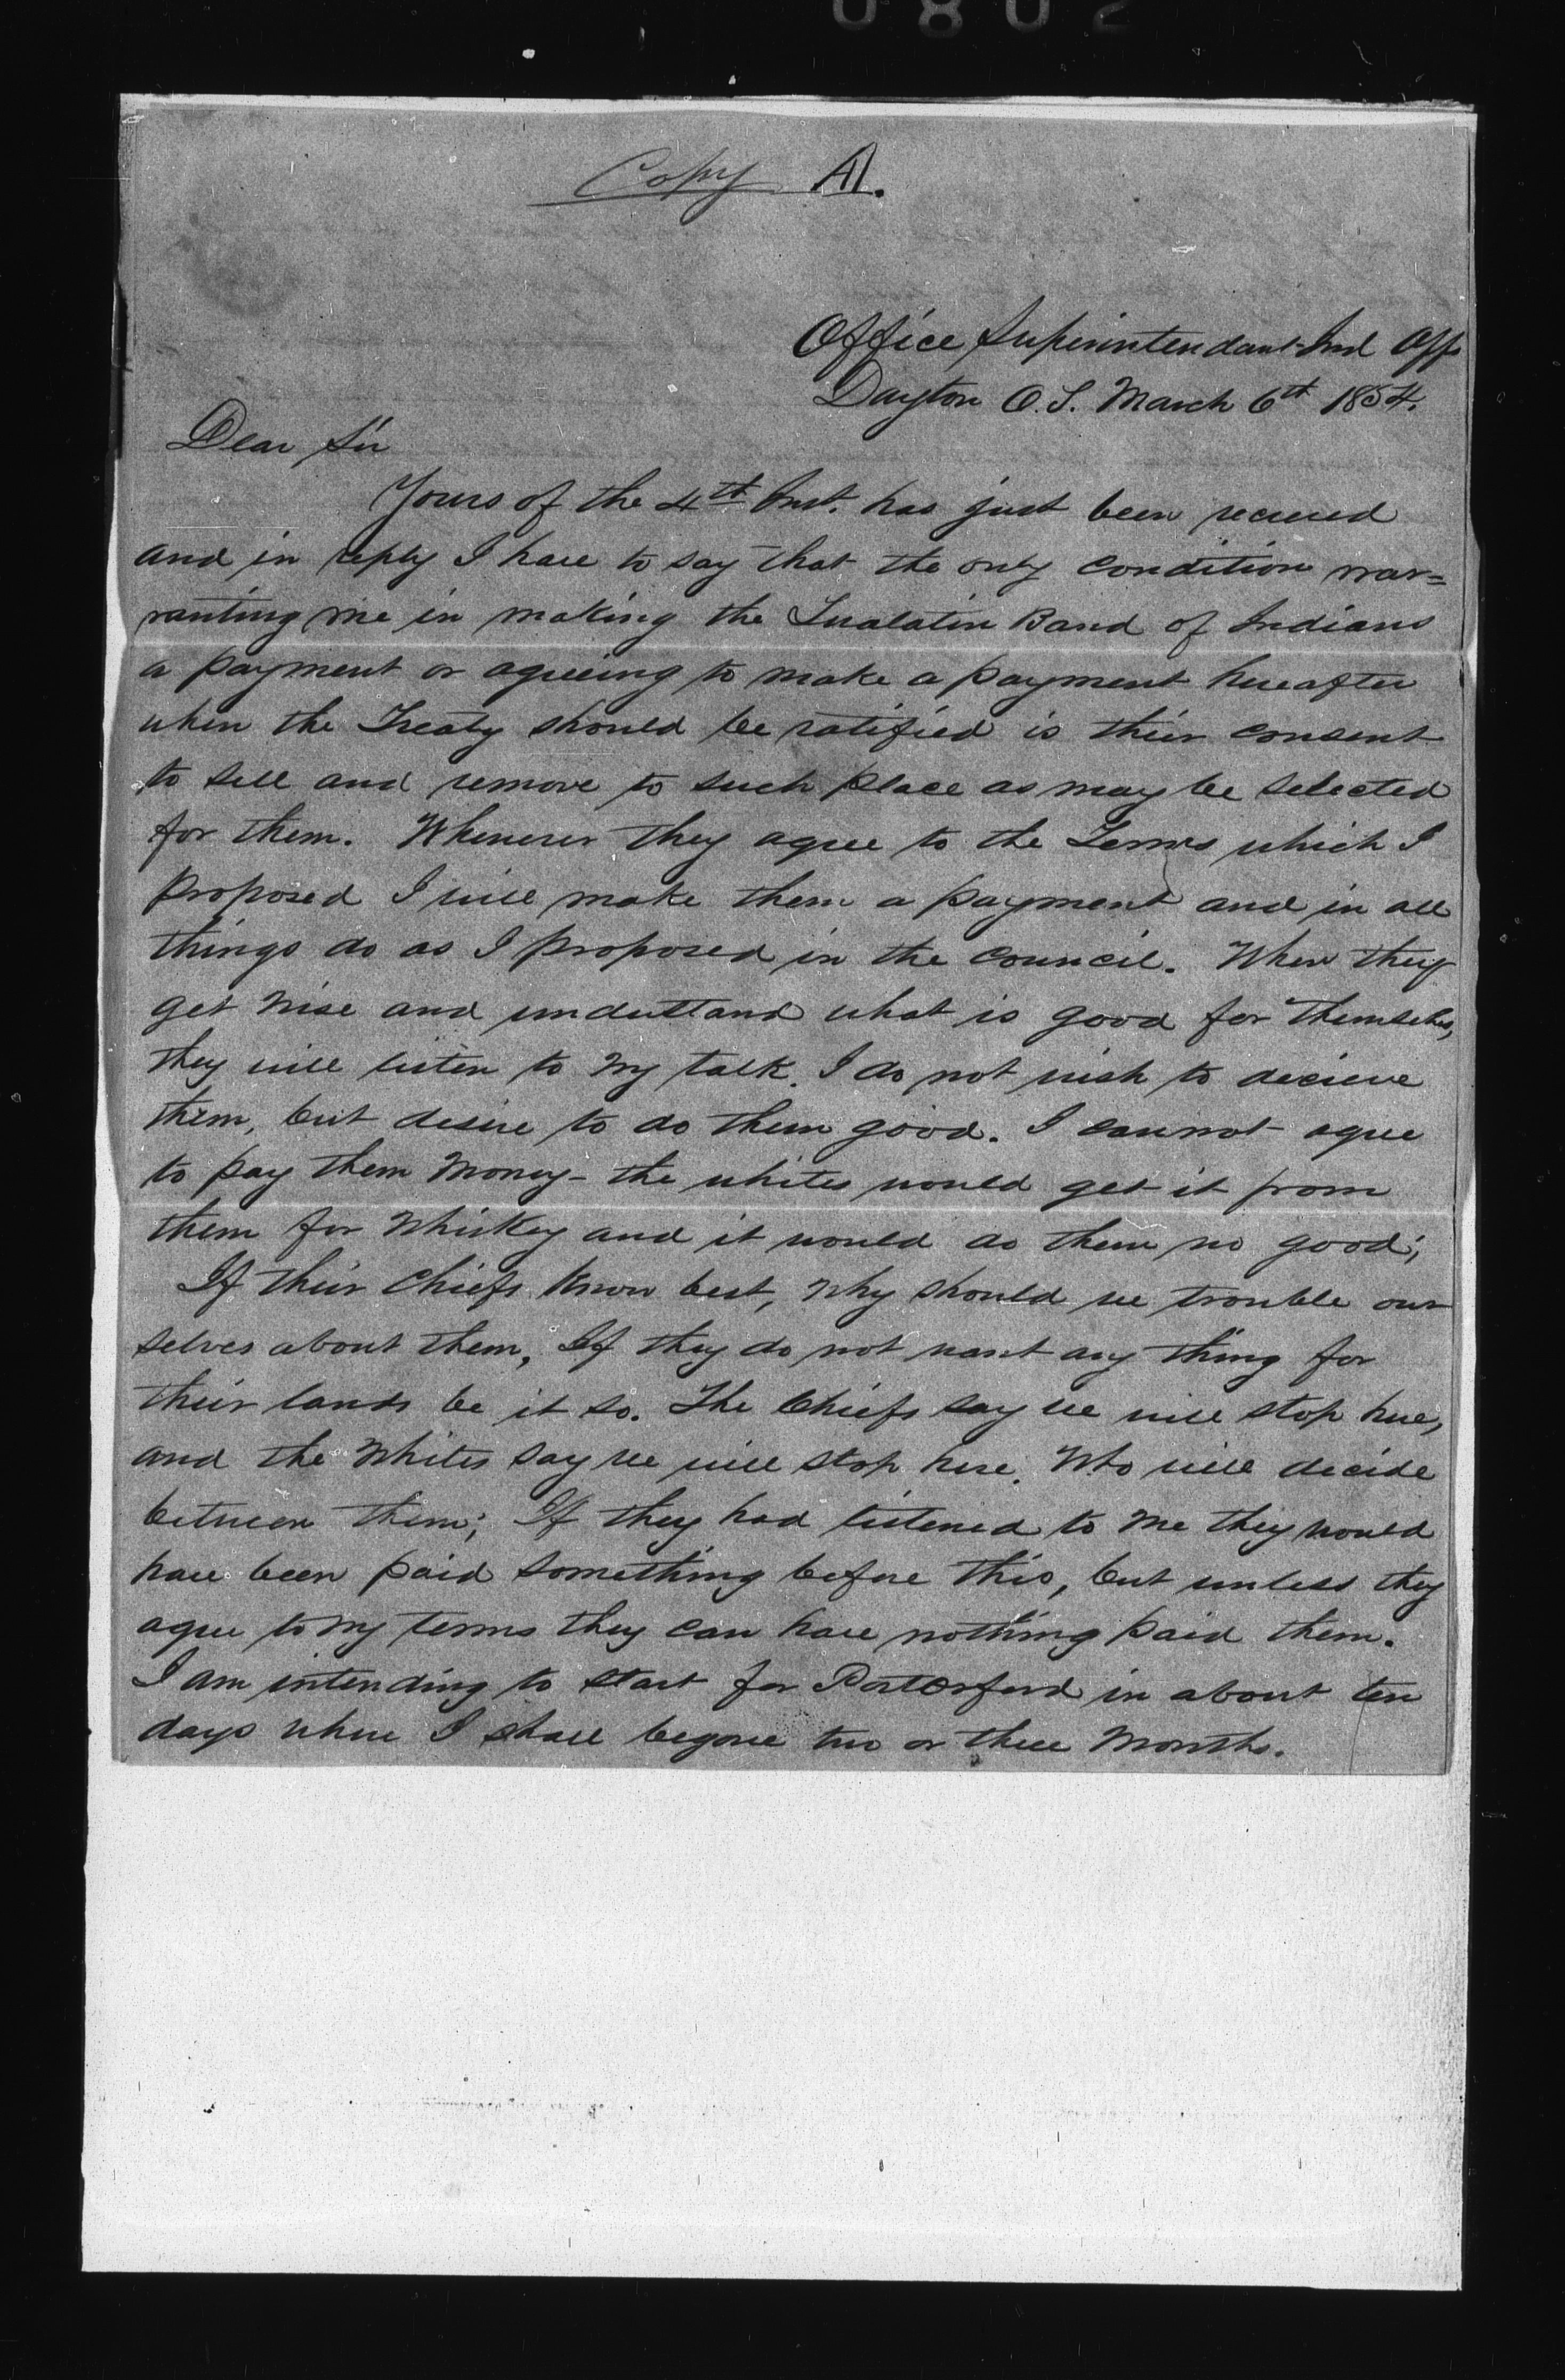 0802
Copy A.
Office Superintendant Ind Affs
Dayton O.T. March 6th 1854.
Dear Sir
Yours of the 4th Inst. has just been received
and in reply I have to say that the only condition war=
ranting me in making the Tualatin Band of Indians
a payment or agreeing to make a payment hereafter
when the Treaty should be ratified is their consent
to sell and remove to such place as may be selected
for them. Whenever they agree to the Terms which I
proposed I will make them a payment and in all
things do as I proposed in the council. When they
get wise and understand what is good for themselves,
they will listen to my talk. I do not wish to decieve
them, but desire to do them good. I cannot agree
to pay them money - the whites would get it from
them for Whiskey and it would do them no good;
If their Chiefs know best, why should we trouble our
selves about them, If they do not want any thing for
their lands be it so. The Chiefs say we will stop here,
and the Whites say we will stop here. Who will decide
between them; If they had listened to me they would
have been paid something before this, but unless they
agree to my terms they can have nothing paid them.
I am intending to start for Port Orford in about ten
days where I shall be gone two or three Months.